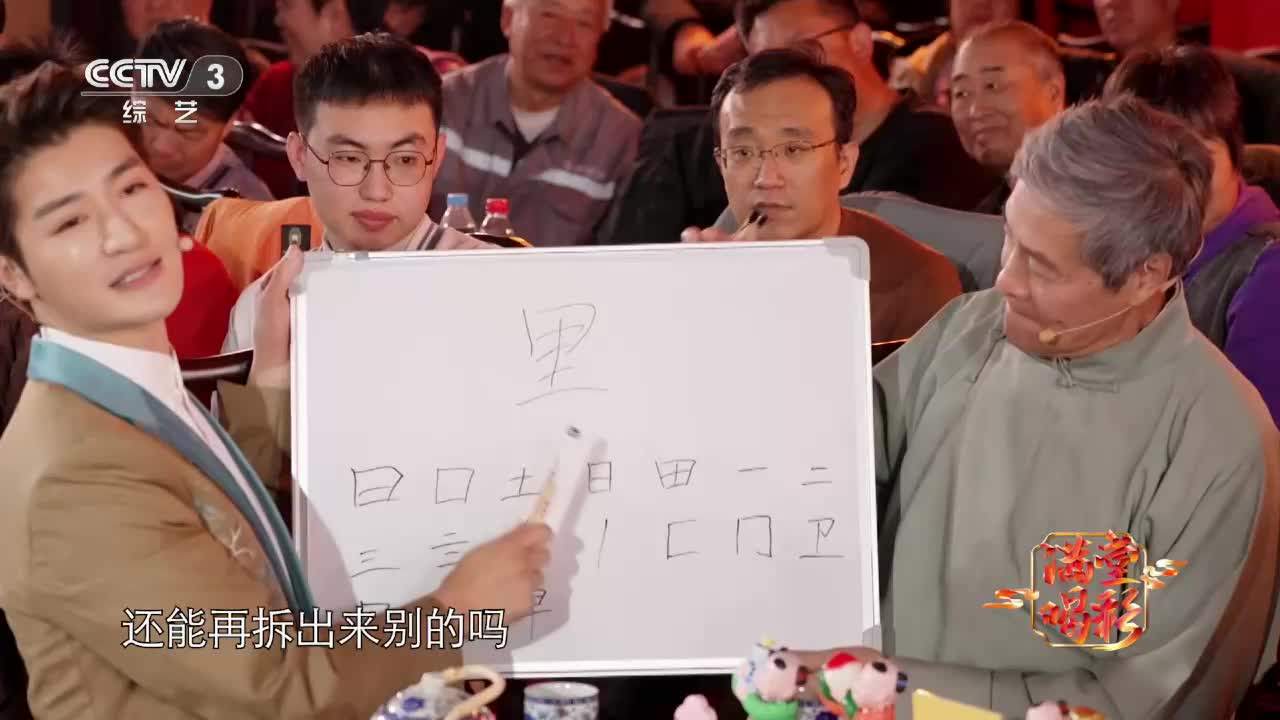 CCTV 3
综艺
里
曰 口 土 日 田 一 二
三 亖 丨 匚 冂 卫
早
还能再拆出来别的吗
满堂
喝彩